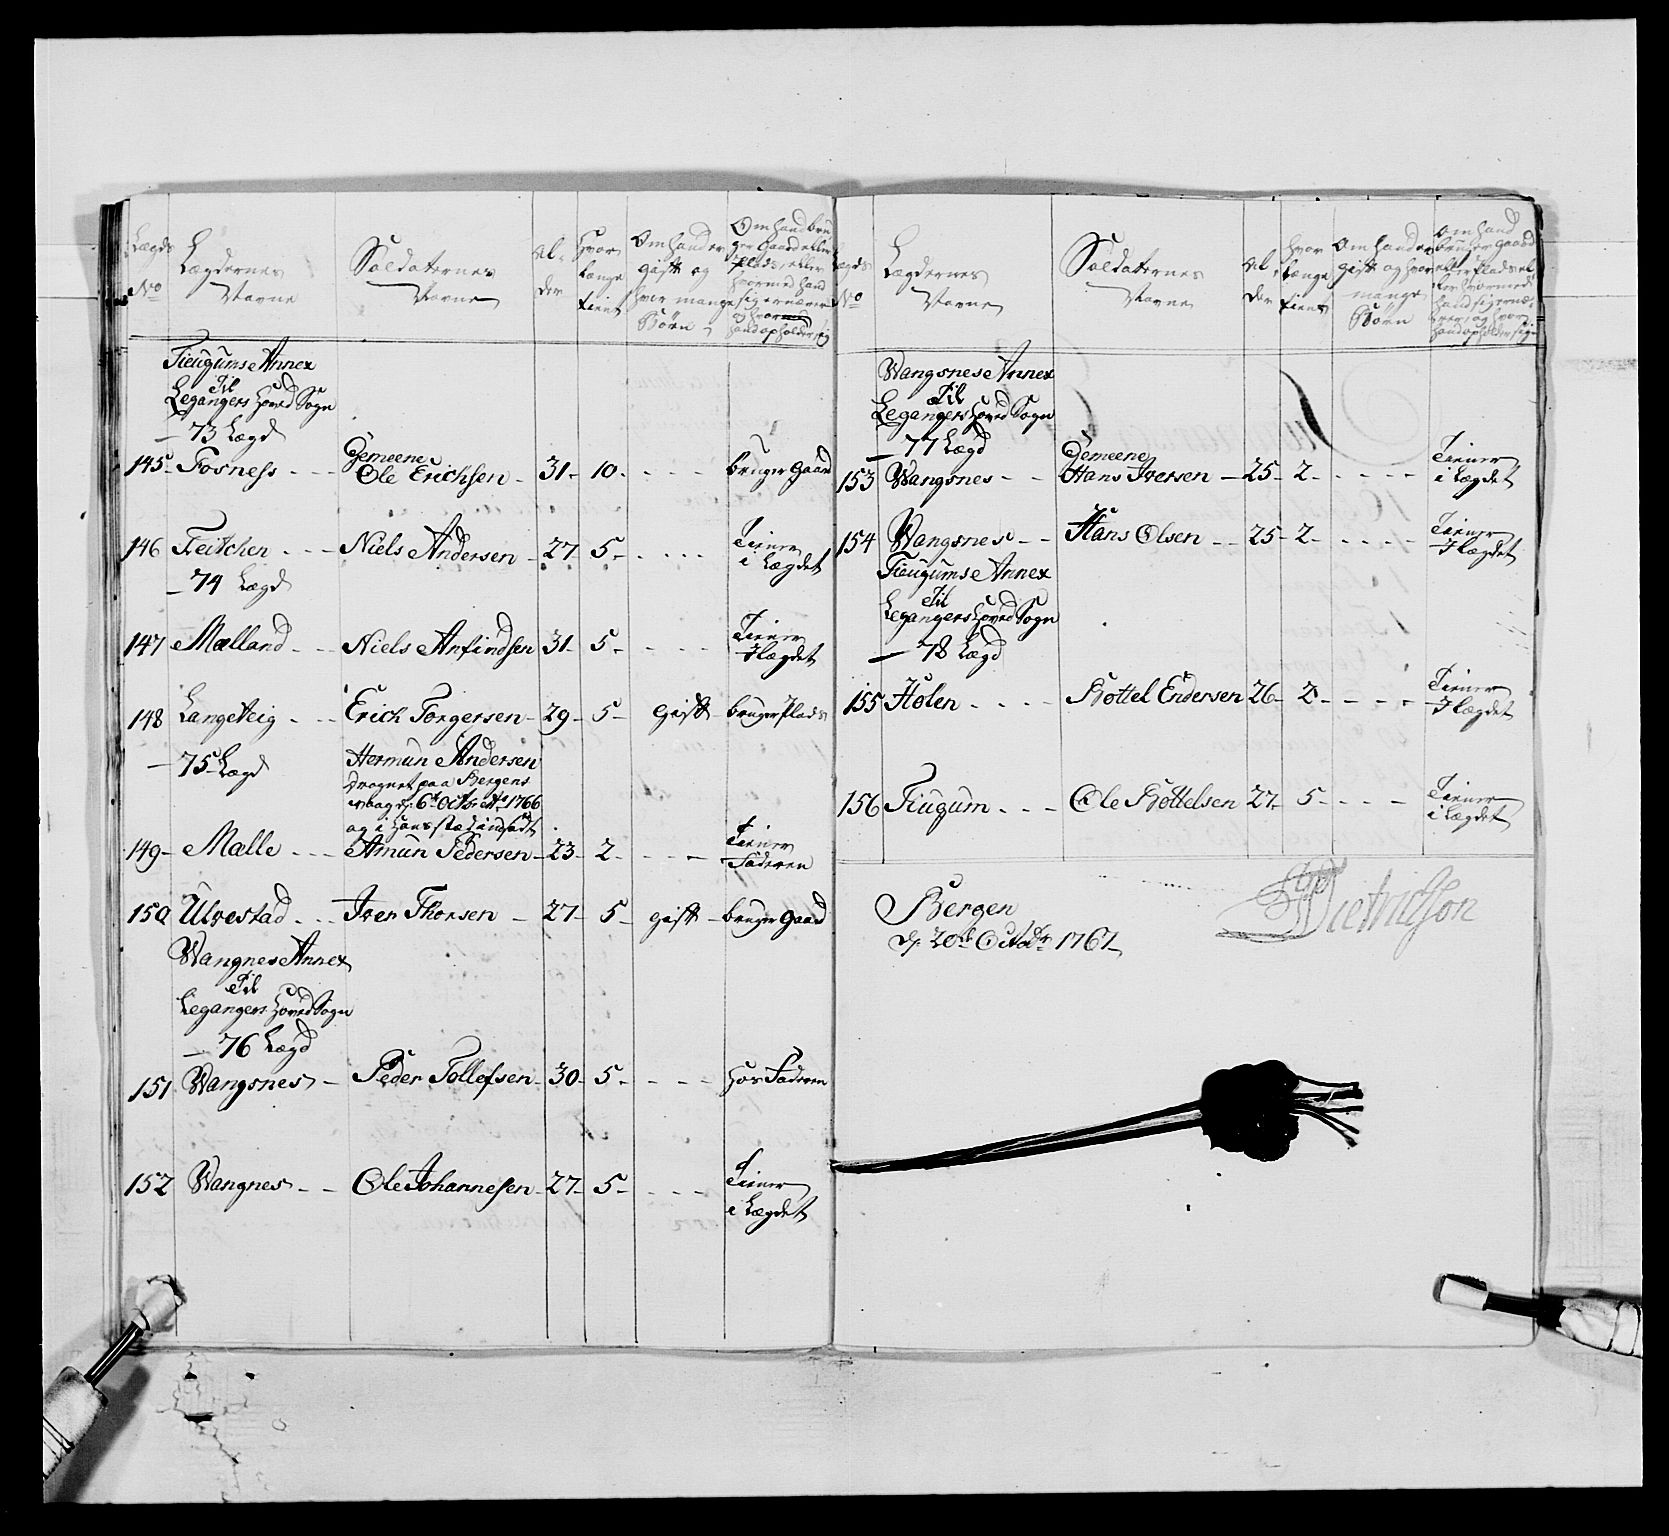 Lægds No
Lægdernes Navne
Soldaternes Navne
Al-der
Hvor længe tient
Om hand er gift og hvor mange Börn
Om hand bruger Gaard eller Plads, eller hvormed hand sig ernærer og hvor hand opholder sig
Tieugums Annex
Til
Legangers Hoved Sogn
— 73 Lægd
Gemeene
145 Fosness - - - Ole Erichsen - 31 - 10 - - - - - bruger Gaard
146 Feitchen - - - Niels Andersen - 27 - 5 - - - - - Tiener i Lægdet
— 74 Lægd
147 Mælland - - - Niels Anfindsen 31 - 5 - - - - Tiener I Lægdet
148 Langeteig - - - Erich Torgersen - 29 - 5 - gift - bruger Plads
— 75 Lægd
Hermun Andersen
Drognet paa Bergens
Waag d: 6te Octbr: Ao 1766
og i hans stæd indsadt
149 - Mælle - - - Amun Pedersen - 23 - 2 - - - - Tiener Faderen
150 Ulvestad - - - Iver Thorsen - 27 - 5 - gift - bruger Gaard
Wangnes Annex
Til
Legangers Hoved Sogn
— 76 Lægd
151 Wangsnes - Peder Tollefsen - 30 - 5 - - - - hos Faderen
152 Wangnes - - Ole Johannesen - 27 - 5 - - - - Tiener i Lægdet
Lægds No
Lægdernes Navne
Soldaternes Navne
Al-der
hvor længe tient
Om hand er gift og hvor mange Börn
Om hand bruger Gaard eller Plads eller hvormed hand sig ernærer, og hvor hand opholder sig
Wangsnes Annex
Til
Legangers Hoved Sogn
— 77 Lægd
Gemeene
153 Wangsnes - - Hans Iversen - 25 - 2 - - - - - Tiener i Lægdet
154 Wangsnes - - Hans Olsen - - 25 - 2 - - - - - Tiener I Lægdet
Tieugums Annex
Til
Legangers Hoved Sogn
— 78 Lægd
155 Holen - - - - Bottel Endersen 26 - 2 - - - - Tiener I Lægdet
156 Tiugum - - - Ole Bottelsen - 27 - 5 - - - - Tiener i Lægdet
Bergen
d: 20de Octobr: 1767